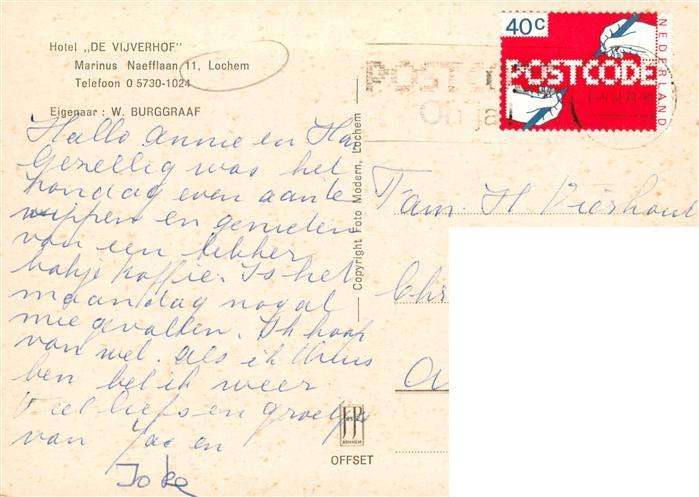 Hotel „DE VIJVERHOF"
Marinus Naefflaan 11, Lochem
Telefoon 0 5730-1024
Eigenaar : W. BURGGRAAF
Hallo Annie en
Gezellig was het
zondag even aan te
wippen en genieten
van een lekker
bakje koffie. Is het
maandag nogal
mee gevallen. Ik hoop
van wel. als ik thuis
ben bel ik weer
Veel liefs en groetjes
van Jac en
Joke
Copyright Foto Modern, Lochem
JosP
ARNHEM
OFFSET
40c
NEDERLAND
POSTCODE
POST
Fam. H
Chr
A